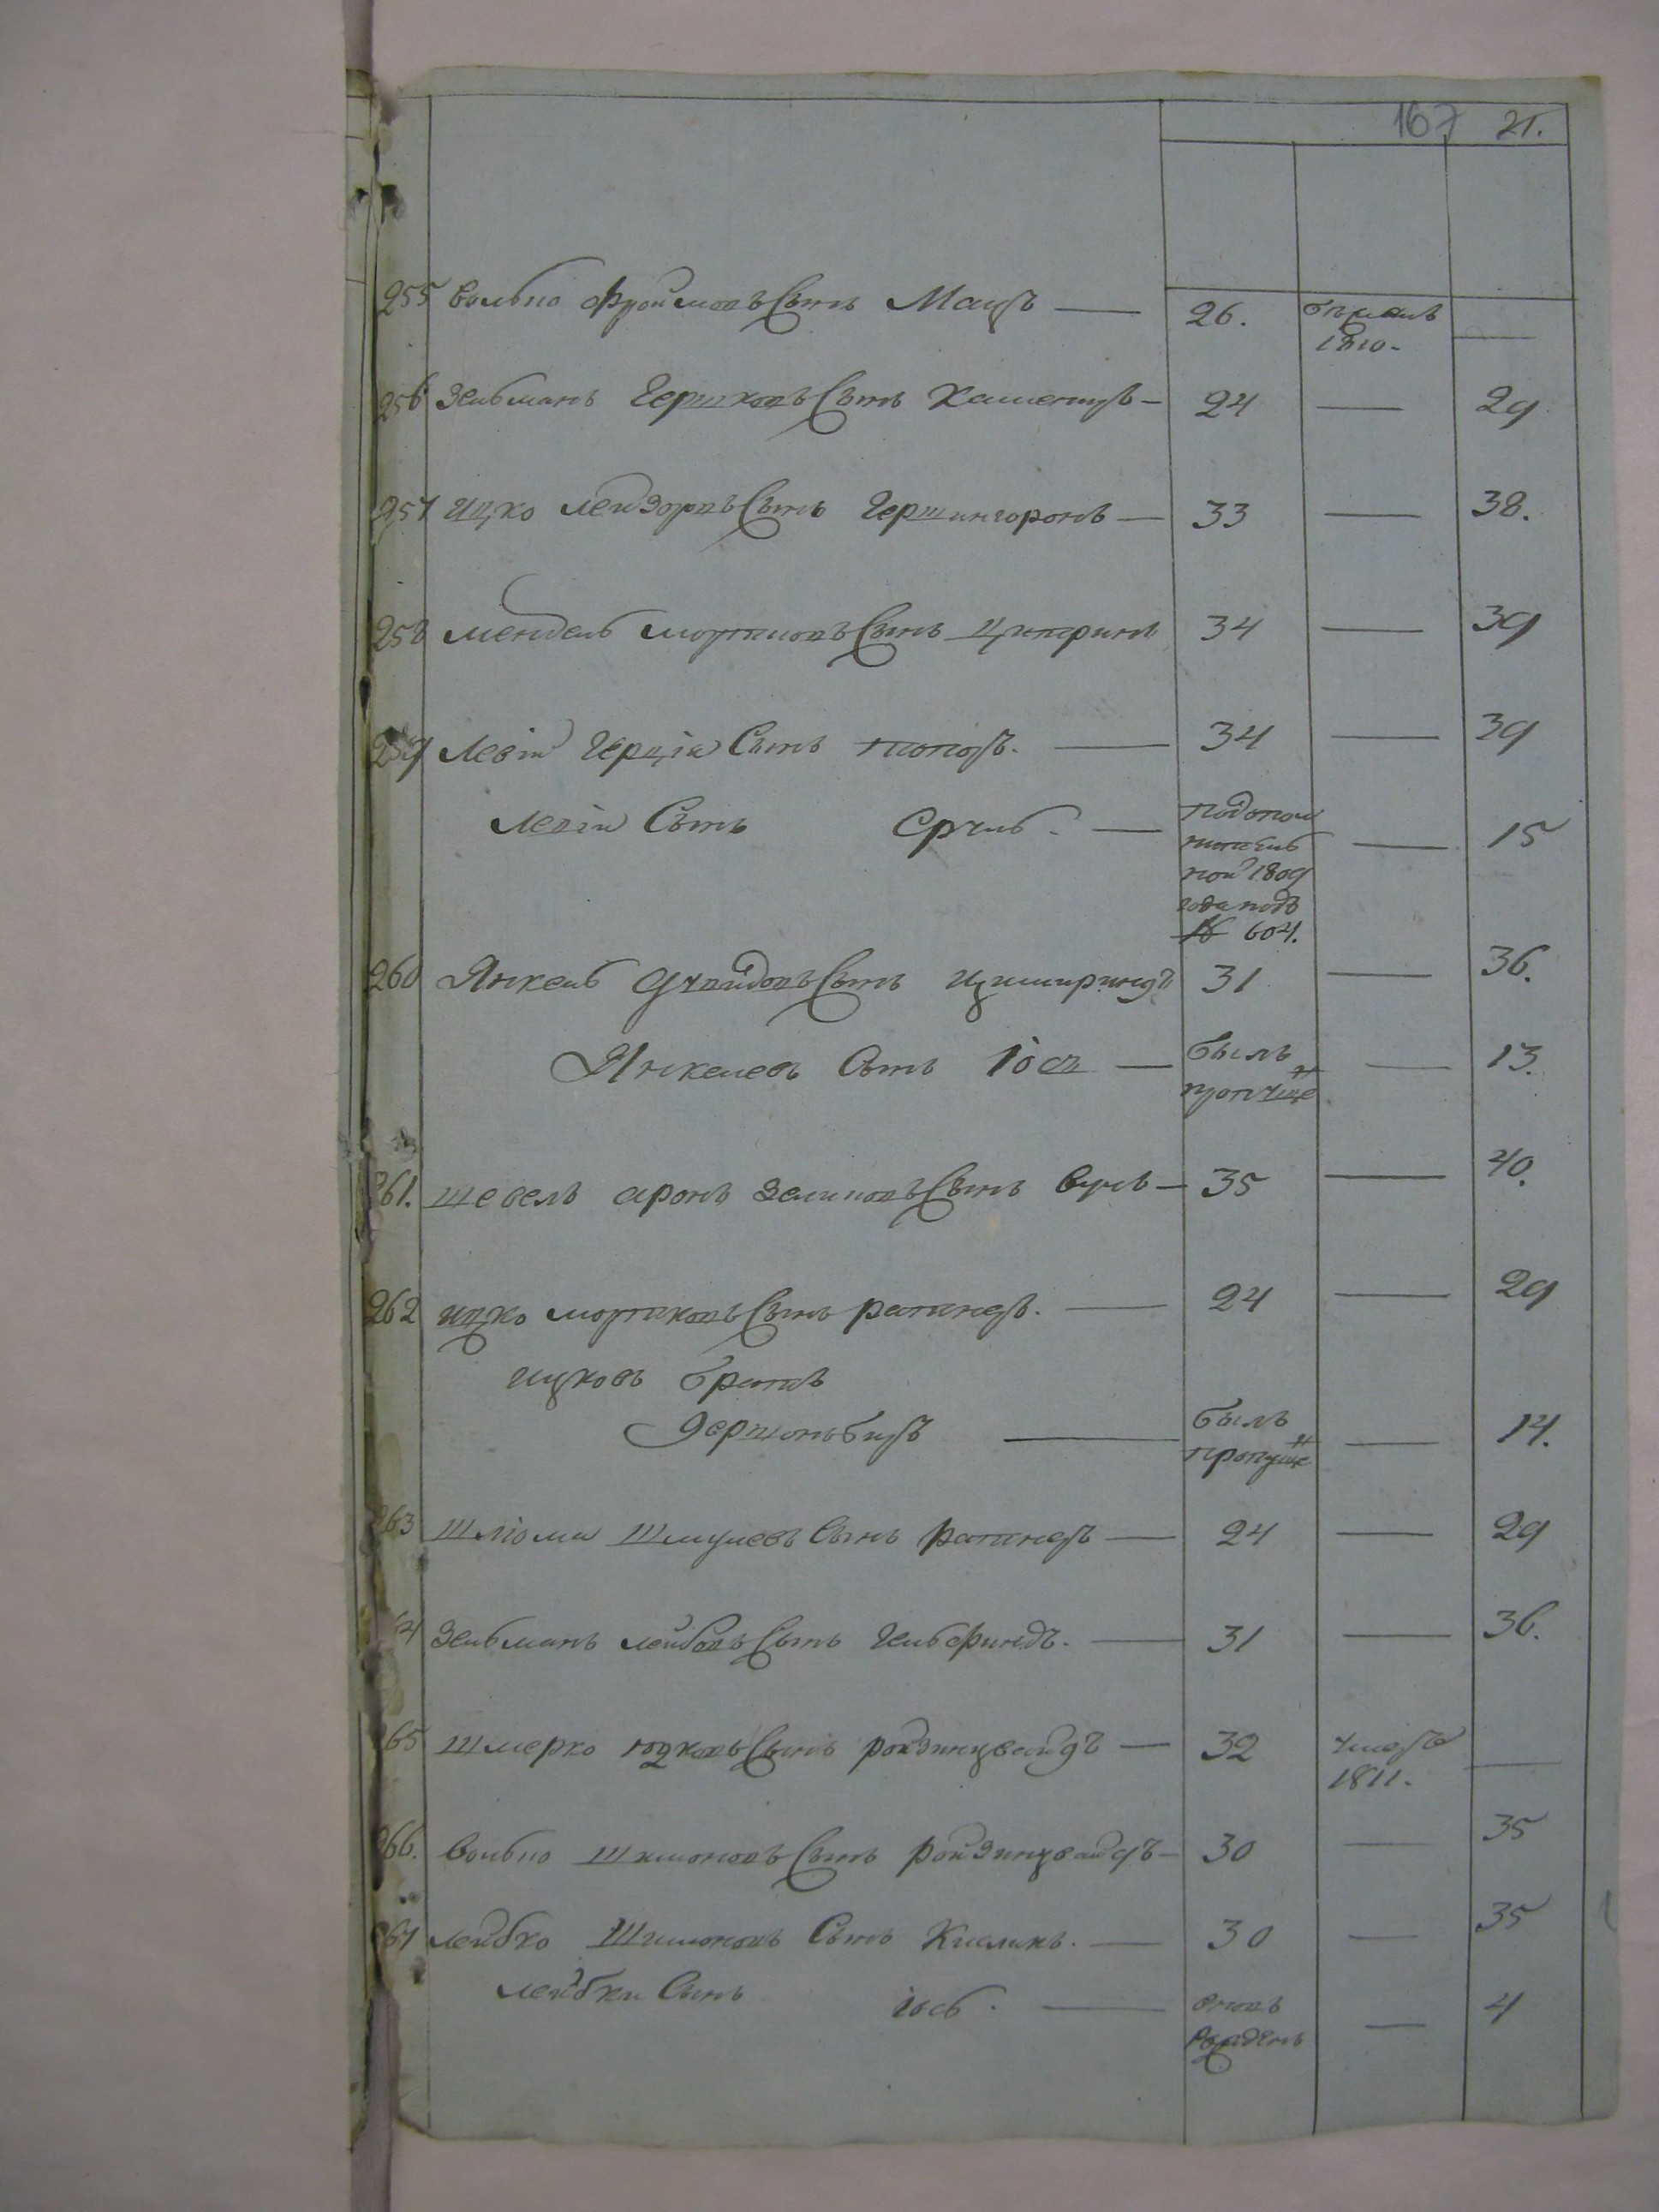 167 21.
255 Вольпо Фроимовъ Сынъ Мацъ — 26. бежалъ
1810.
256 Зельманъ Гершковъ Сынъ Каменецъ — 24 — 29
257 Ицко Лейзоровъ Сынъ Герштингоронъ — 33 — 38.
258 Мендель Мортховъ Сынъ Циперинъ 34 — 39
259 Левiй Герцiя Сынъ — 34 — 39
Левiя Сынъ Сруль — по дополнительной 1809 года подъ № 604. — 15
260 Янкель Сынъ 31 — 36.
Янкелевъ Сынъ Iосъ — былъ пропущенъ — 13.
261. Шевель Аронъ Зеликовъ Сынъ — 35 — 40.
262 Ицко Мортковъ Сынъ — 24 — 29
Ицковъ братъ
— былъ пропущенъ — 14.
263 Шлiома Шмулевъ Сынъ — 24 — 29
64 Зельманъ Лейбовъ Сынъ Гельфиндъ. — 31 — 36.
265 Шмерко Юдковъ Сынъ Ройзинцвайгъ — 32 умеръ
1811.
266. Вольпо Шимоновъ Сынъ Ройзинцвайгъ — 30 — 35
267 Лейбко Шимоновъ Сынъ Кислинъ. — 30 — 35
Лейбки Сынъ Iось. — вновь рожденъ — 4